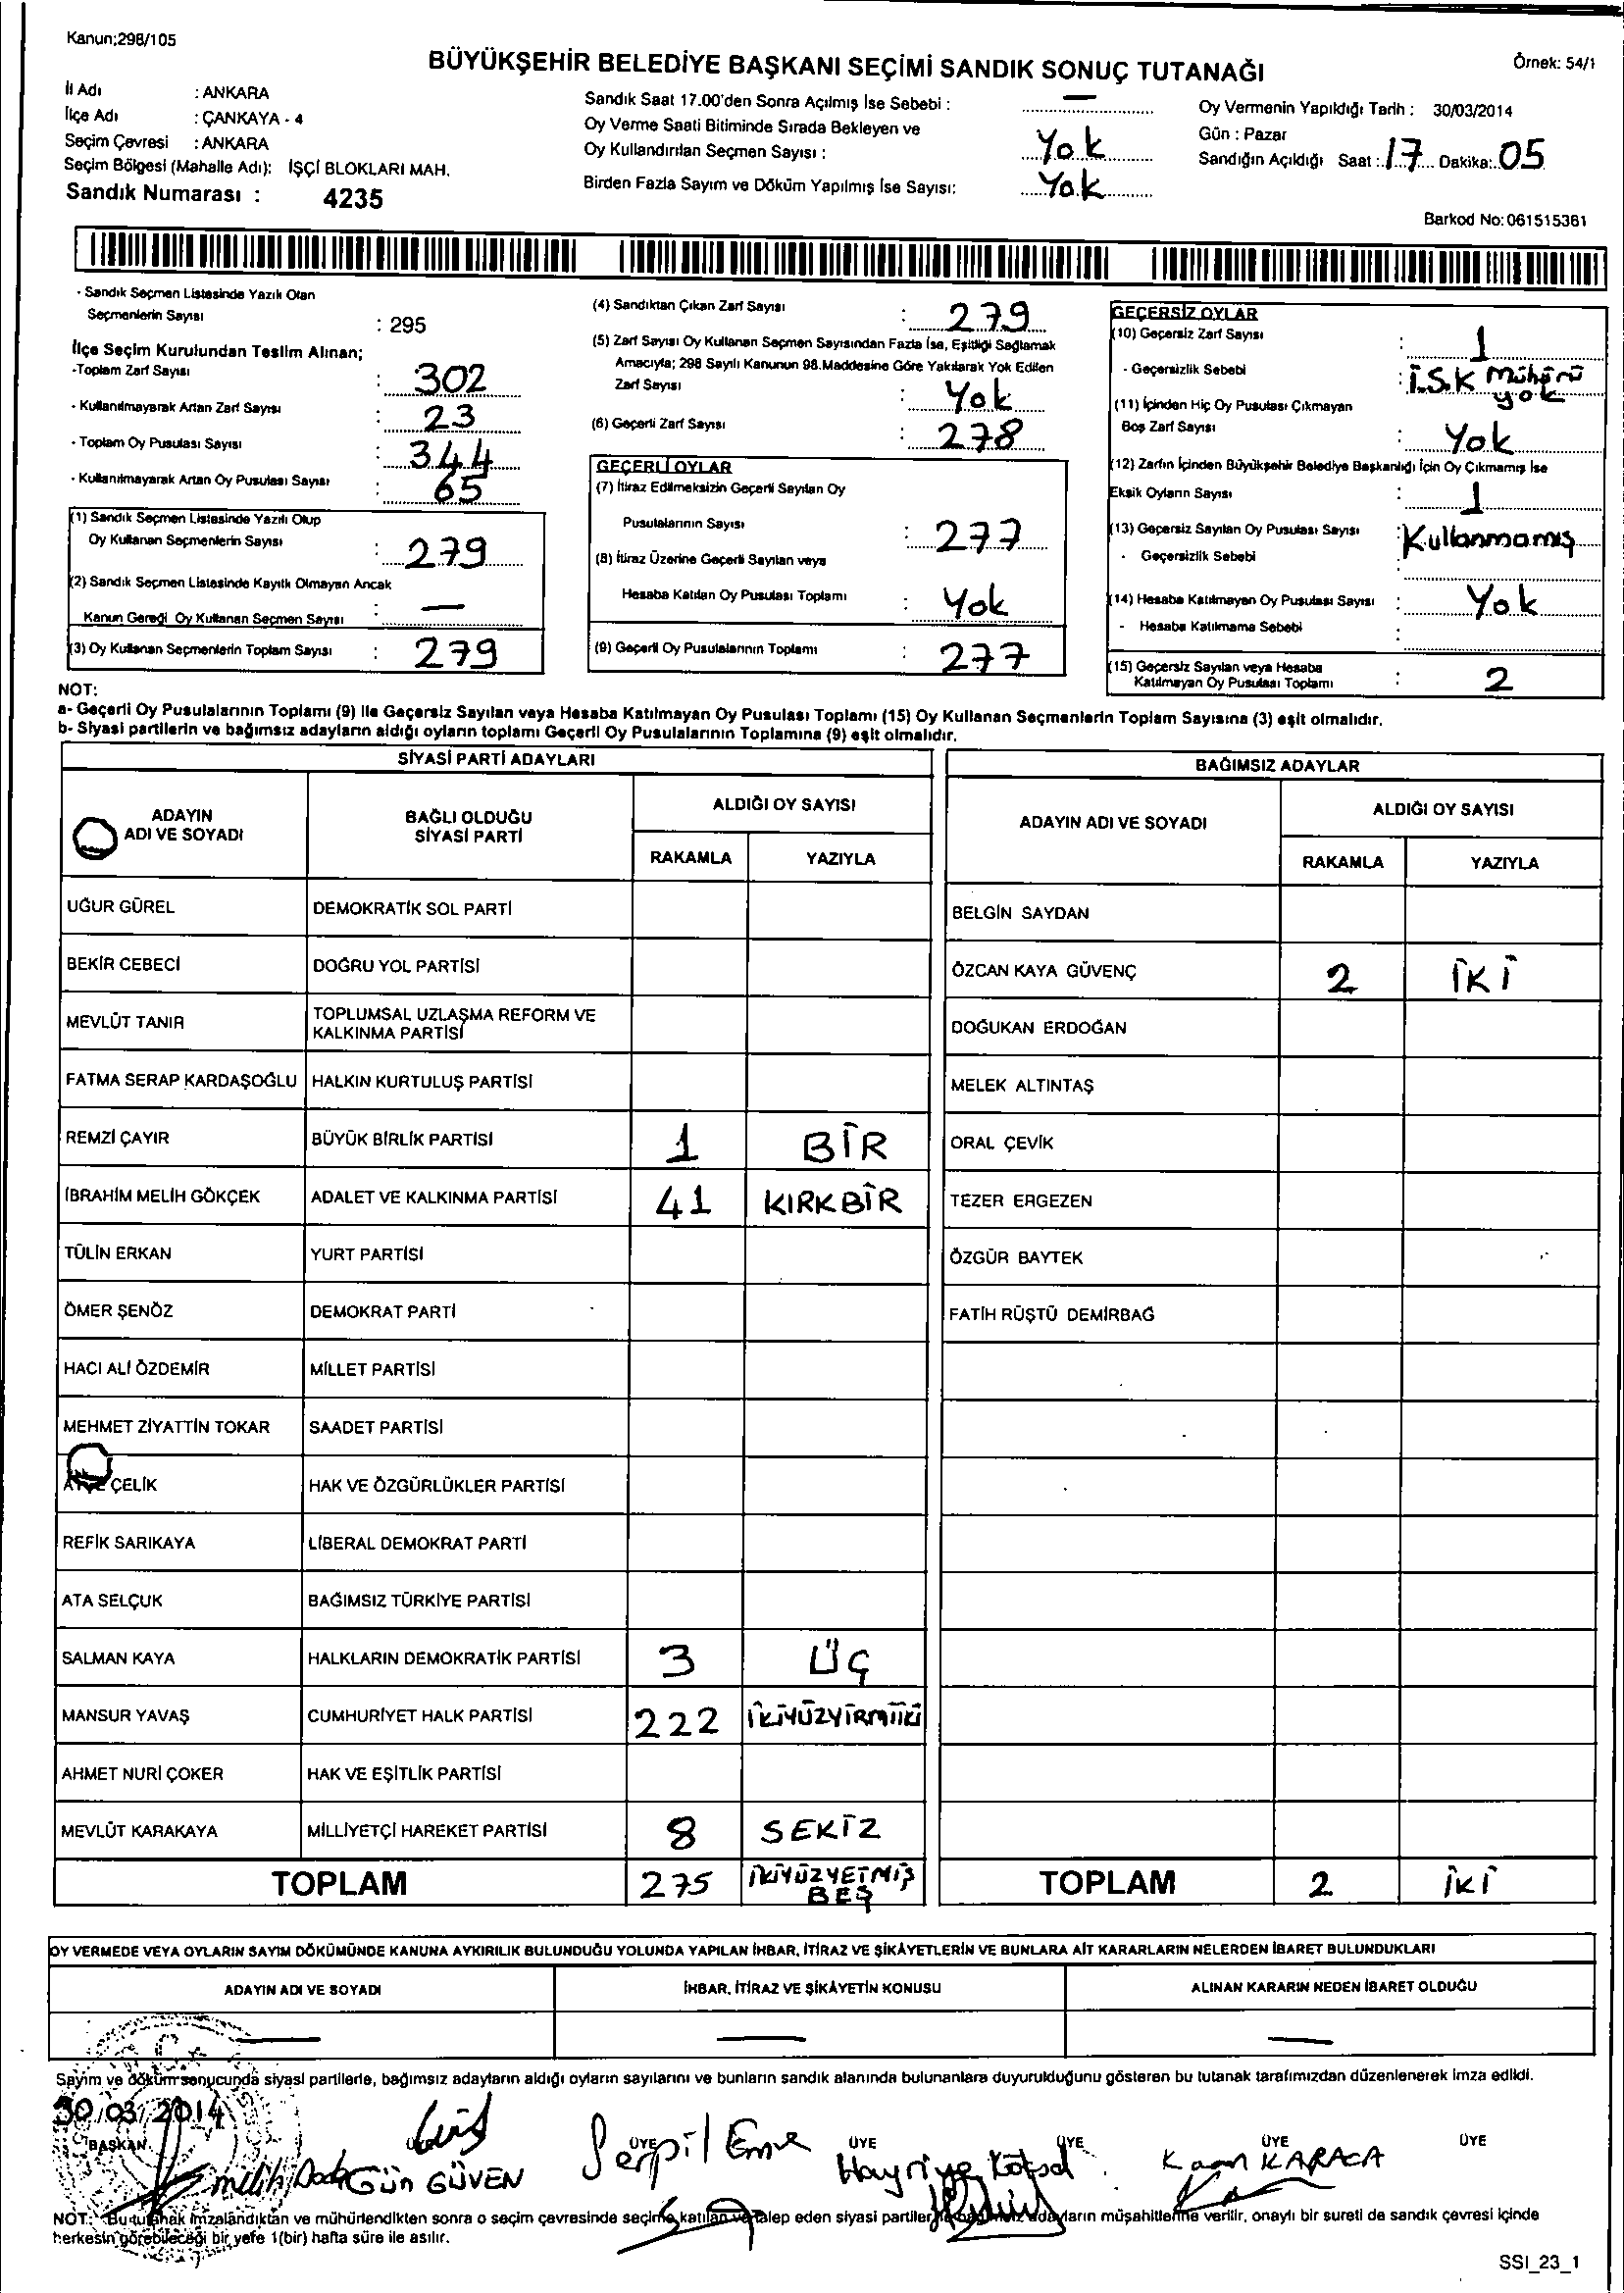 Kanun;298/105
BÜYÜKŞEHİR BELEDİYE BAŞKANI SEÇİMİ SANDIK SONUÇ TUTANAĞI
Örnek: 54/1
İl Adı : ANKARA
İlçe Adı : ÇANKAYA - 4
Seçim Çevresi : ANKARA
Seçim Bölgesi (Mahalle Adı): İŞÇİ BLOKLARI MAH.
Sandık Numarası : 4235
Sandık Saat 17.00'den Sonra Açılmış İse Sebebi : —
Oy Verme Saati Bitiminde Sırada Bekleyen ve
Oy Kullandırılan Seçmen Sayısı : Yok
Birden Fazla Sayım ve Döküm Yapılmış İse Sayısı: Yok
Oy Vermenin Yapıldığı Tarih : 30/03/2014
Gün : Pazar
Sandığın Açıldığı Saat : 17 Dakika: 05
Barkod No: 061515361
- Sandık Seçmen Listesinde Yazılı Olan
Seçmenlerin Sayısı : 295
İlçe Seçim Kurulundan Teslim Alınan;
-Toplam Zarf Sayısı : 302
- Kullanılmayarak Artan Zarf Sayısı : 23
- Toplam Oy Pusulası Sayısı : 344
- Kullanılmayarak Artan Oy Pusulası Sayısı : 65
(1) Sandık Seçmen Listesinde Yazılı Olup
Oy Kullanan Seçmenlerin Sayısı : 279
(2) Sandık Seçmen Listesinde Kayıtlı Olmayan Ancak
Kanun Gereği Oy Kullanan Seçmen Sayısı : —
(3) Oy Kullanan Seçmenlerin Toplam Sayısı : 279
(4) Sandıktan Çıkan Zarf Sayısı : 279
(5) Zarf Sayısı Oy Kullanan Seçmen Sayısından Fazla İse, Eşitliği Sağlamak
Amacıyla; 298 Sayılı Kanunun 98.Maddesine Göre Yakılarak Yok Edilen
Zarf Sayısı : Yok
(6) Geçerli Zarf Sayısı : 278
GEÇERLİ OYLAR
(7) İtiraz Edilmeksizin Geçerli Sayılan Oy
Pusulalarının Sayısı : 277
(8) İtiraz Üzerine Geçerli Sayılan veya
Hesaba Katılan Oy Pusulası Toplamı : Yok
(9) Geçerli Oy Pusulalarının Toplamı : 277
GEÇERSİZ OYLAR
(10) Geçersiz Zarf Sayısı : 1
- Geçersizlik Sebebi : İ.S.K Mühürü
yok
(11) İçinden Hiç Oy Pusulası Çıkmayan
Boş Zarf Sayısı : Yok
(12) Zarfın İçinden Büyükşehir Belediye Başkanlığı İçin Oy Çıkmamış İse
Eksik Oyların Sayısı : 1
(13) Geçersiz Sayılan Oy Pusulası Sayısı : Kullanmamış
- Geçersizlik Sebebi :
(14) Hesaba Katılmayan Oy Pusulası Sayısı : Yok
- Hesaba Katılmama Sebebi :
(15) Geçersiz Sayılan veya Hesaba
Katılmayan Oy Pusulası Toplamı : 2
NOT:
a- Geçerli Oy Pusulalarının Toplamı (9) ile Geçersiz Sayılan veya Hesaba Katılmayan Oy Pusulası Toplamı (15) Oy Kullanan Seçmenlerin Toplam Sayısına (3) eşit olmalıdır.
b- Siyasi partilerin ve bağımsız adayların aldığı oyların toplamı Geçerli Oy Pusulalarının Toplamına (9) eşit olmalıdır.
SİYASİ PARTİ ADAYLARI
ADAYIN
ADI VE SOYADI
BAĞLI OLDUĞU
SİYASİ PARTİ
ALDIĞI OY SAYISI
RAKAMLA YAZIYLA
UĞUR GÜREL DEMOKRATİK SOL PARTİ
BEKİR CEBECİ DOĞRU YOL PARTİSİ
MEVLÜT TANIR TOPLUMSAL UZLAŞMA REFORM VE
KALKINMA PARTİSİ
FATMA SERAP KARDAŞOĞLU HALKIN KURTULUŞ PARTİSİ
REMZİ ÇAYIR BÜYÜK BİRLİK PARTİSİ 1 BİR
İBRAHİM MELİH GÖKÇEK ADALET VE KALKINMA PARTİSİ 41 KIRKBİR
TÜLİN ERKAN YURT PARTİSİ
ÖMER ŞENÖZ DEMOKRAT PARTİ
HACI ALİ ÖZDEMİR MİLLET PARTİSİ
MEHMET ZİYATTİN TOKAR SAADET PARTİSİ
ÇELİK HAK VE ÖZGÜRLÜKLER PARTİSİ
REFİK SARIKAYA LİBERAL DEMOKRAT PARTİ
ATA SELÇUK BAĞIMSIZ TÜRKİYE PARTİSİ
SALMAN KAYA HALKLARIN DEMOKRATİK PARTİSİ 3 ÜÇ
MANSUR YAVAŞ CUMHURİYET HALK PARTİSİ 222 İKİYÜZYİRMİİKİ
AHMET NURİ ÇOKER HAK VE EŞİTLİK PARTİSİ
MEVLÜT KARAKAYA MİLLİYETÇİ HAREKET PARTİSİ 8 SEKİZ
TOPLAM 275 İKİYÜZYETMİŞ
BEŞ
BAĞIMSIZ ADAYLAR
ADAYIN ADI VE SOYADI
ALDIĞI OY SAYISI
RAKAMLA YAZIYLA
BELGİN SAYDAN
ÖZCAN KAYA GÜVENÇ 2 İKİ
DOĞUKAN ERDOĞAN
MELEK ALTINTAŞ
ORAL ÇEVİK
TEZER ERGEZEN
ÖZGÜR BAYTEK
FATİH RÜŞTÜ DEMİRBAĞ
TOPLAM 2 İKİ
OY VERMEDE VEYA OYLARIN SAYIM DÖKÜMÜNDE KANUNA AYKIRILIK BULUNDUĞU YOLUNDA YAPILAN İHBAR, İTİRAZ VE ŞİKÂYETLERİN VE BUNLARA AİT KARARLARIN NELERDEN İBARET BULUNDUKLARI
ADAYIN ADI VE SOYADI İHBAR, İTİRAZ VE ŞİKÂYETİN KONUSU ALINAN KARARIN NEDEN İBARET OLDUĞU
— — —
Sayım ve döküm sonucunda siyasi partilerle, bağımsız adayların aldığı oyların sayılarını ve bunların sandık alanında bulunanlara duyurulduğunu gösteren bu tutanak tarafımızdan düzenlenerek imza edildi.
30/03/2014
BAŞKAN ÜYE ÜYE ÜYE ÜYE ÜYE
Melih Gün GÜVEN Serpil Hayriye Kaan KARACA
NOT: Bu tutanak imzalandıktan ve mühürlendikten sonra o seçim çevresinde seçime katılan ve talep eden siyasi partiler ile bağımsız adayların müşahitlerine verilir, onaylı bir sureti de sandık çevresi içinde
herkesin görebileceği bir yere 1(bir) hafta süre ile asılır.
SSI_23_1